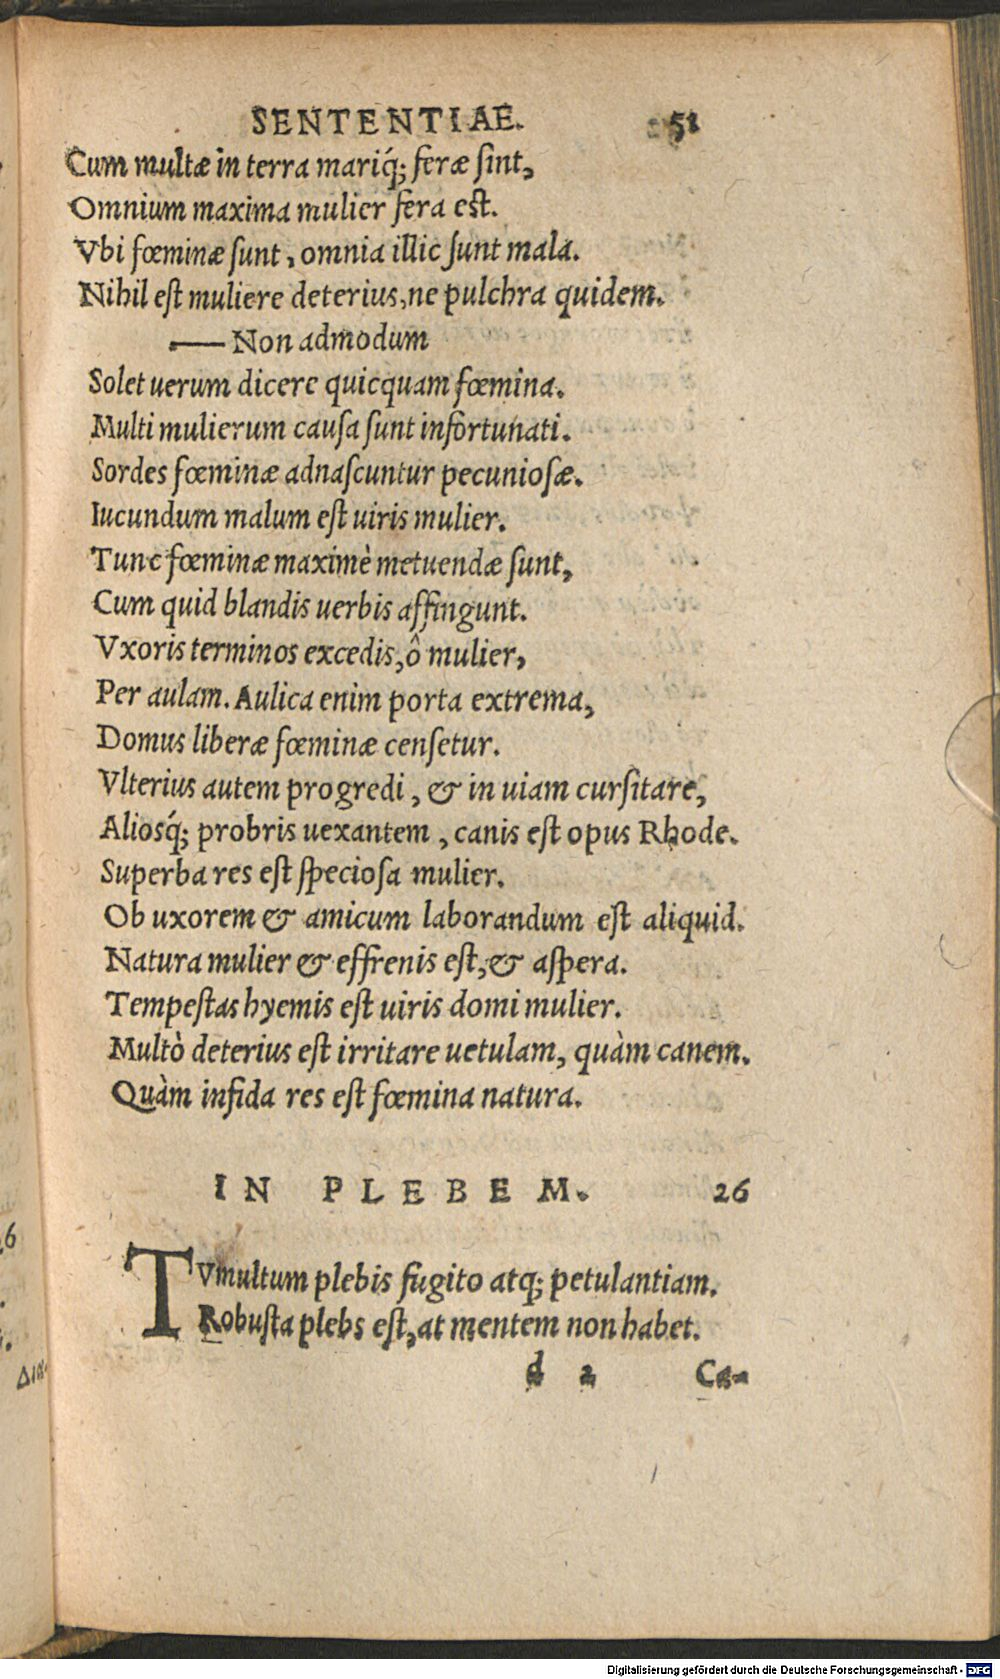 SENTENTIAE. 51
Cum multæ in terra mariq́; feræ ſint,
Omnium maxima mulier fera eſt.
Vbi fœminæ ſunt, omnia illic ſunt mala.
Nihil eſt muliere deterius, ne pulchra quidem.
—— Non admodum
Solet uerum dicere quicquam fœmina.
Multi mulierum cauſa ſunt infortunati.
Sordes fœminæ adnaſcuntur pecunioſæ.
Iucundum malum eſt uiris mulier.
Tunc fœminæ maximè metuendæ ſunt,
Cum quid blandis uerbis affingunt.
Vxoris terminos excedis, ô mulier,
Per aulam. Aulica enim porta extrema,
Domus liberæ fœminæ cenſetur.
Vlterius autem progredi, & in uiam curſitare,
Aliosq́; probris uexantem, canis eſt opus Rhode.
Superba res eſt ſpeciosa mulier.
Ob uxorem & amicum laborandum eſt aliquid.
Natura mulier & effrenis eſt, & aſpera.
Tempeſtas hyemis eſt uiris domi mulier.
Multò deterius eſt irritare uetulam, quàm canem.
Quàm infida res eſt fœmina natura.
IN PLEBEM. 26
TVmultum plebis fugito atq; petulantiam.
Robuſta plebs eſt, at mentem non habet.
d 2